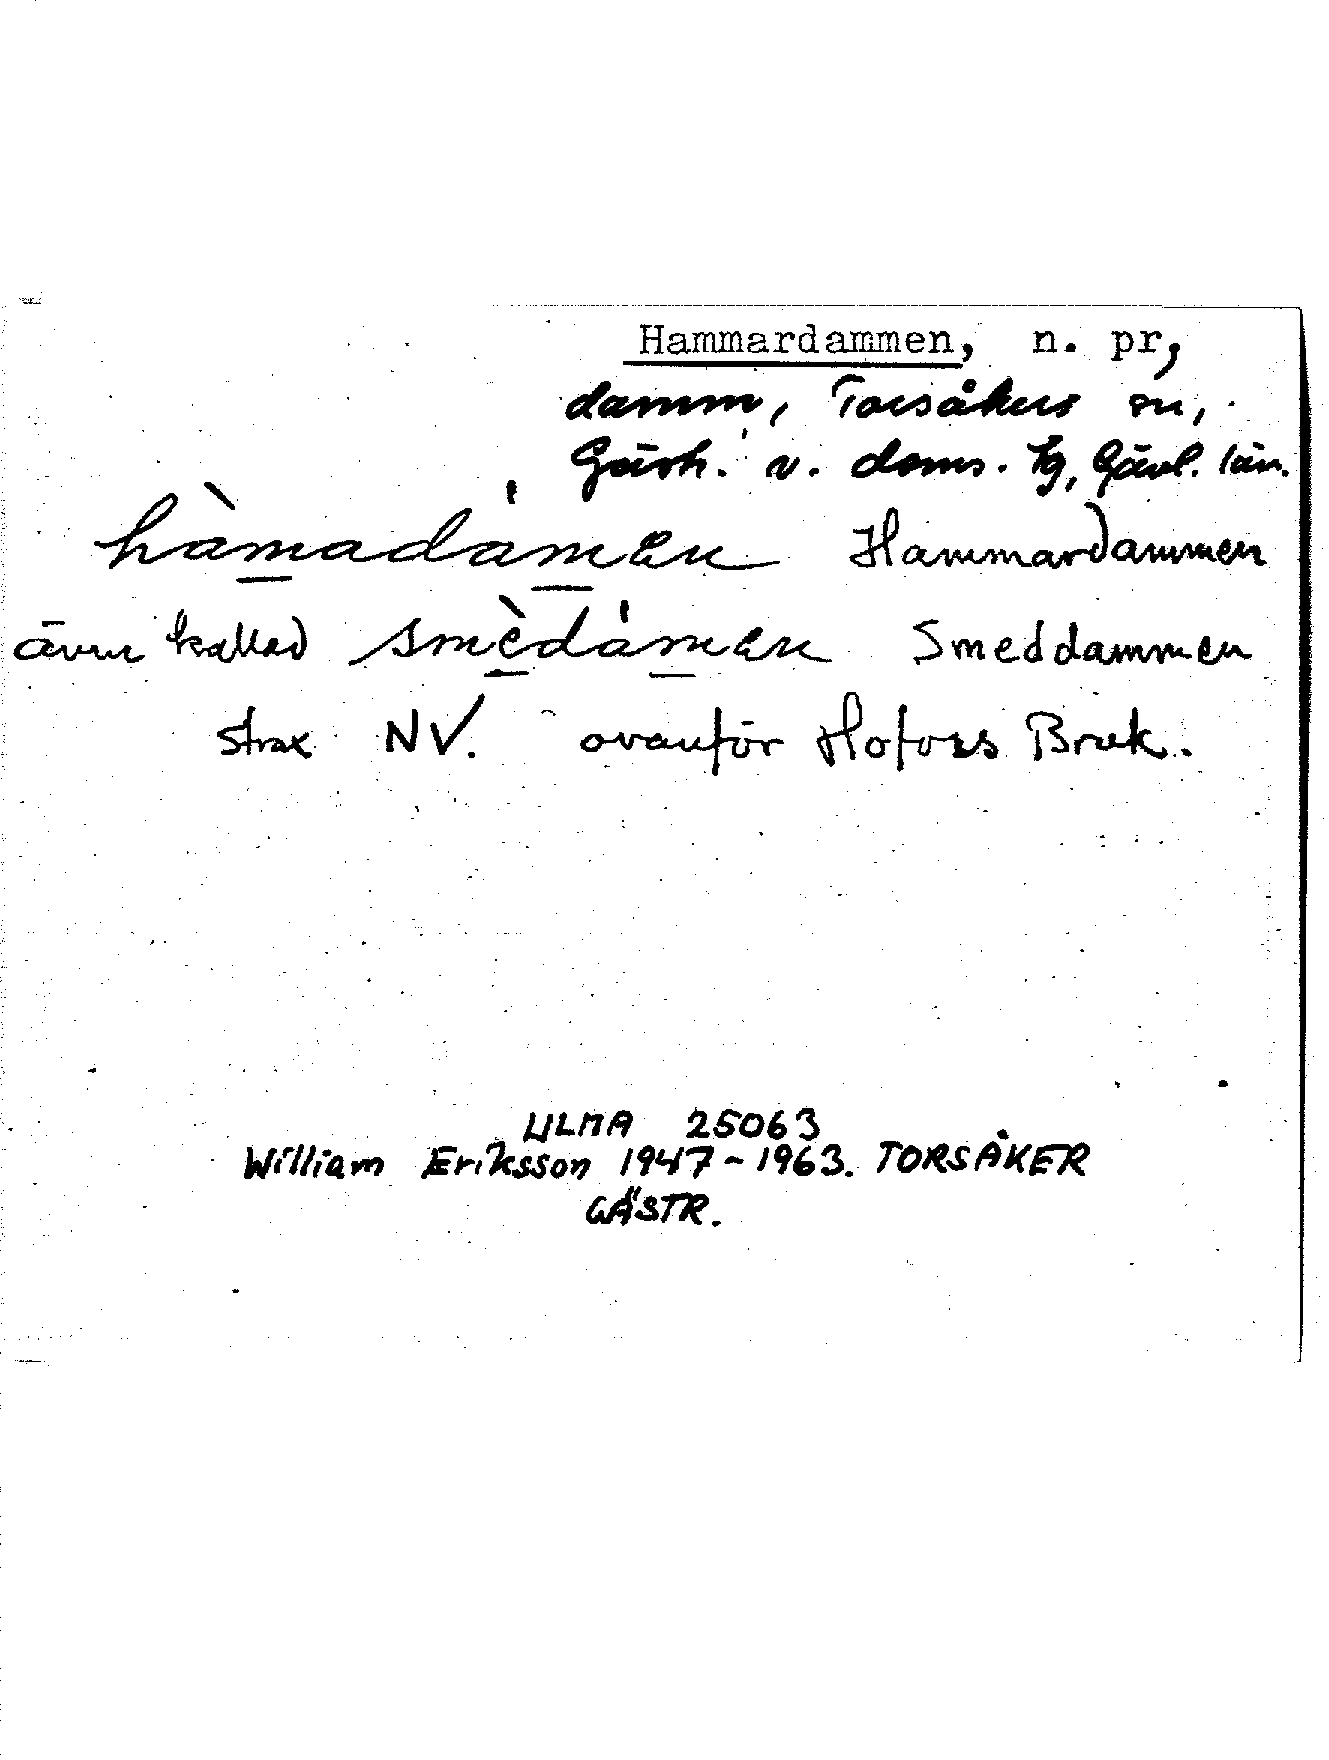 Hammardammen, n. pr,
damm, Torsåkers sn,
Gästr. v. doms. tg, Gävl. län.
hàmadámen Hammardammen
även kallad smèdámen Smeddammen
strax NV. ovanför Hofors Bruk.
ULMA 25063
William Eriksson 1947-1963. TORSÅKER
GÄSTR.